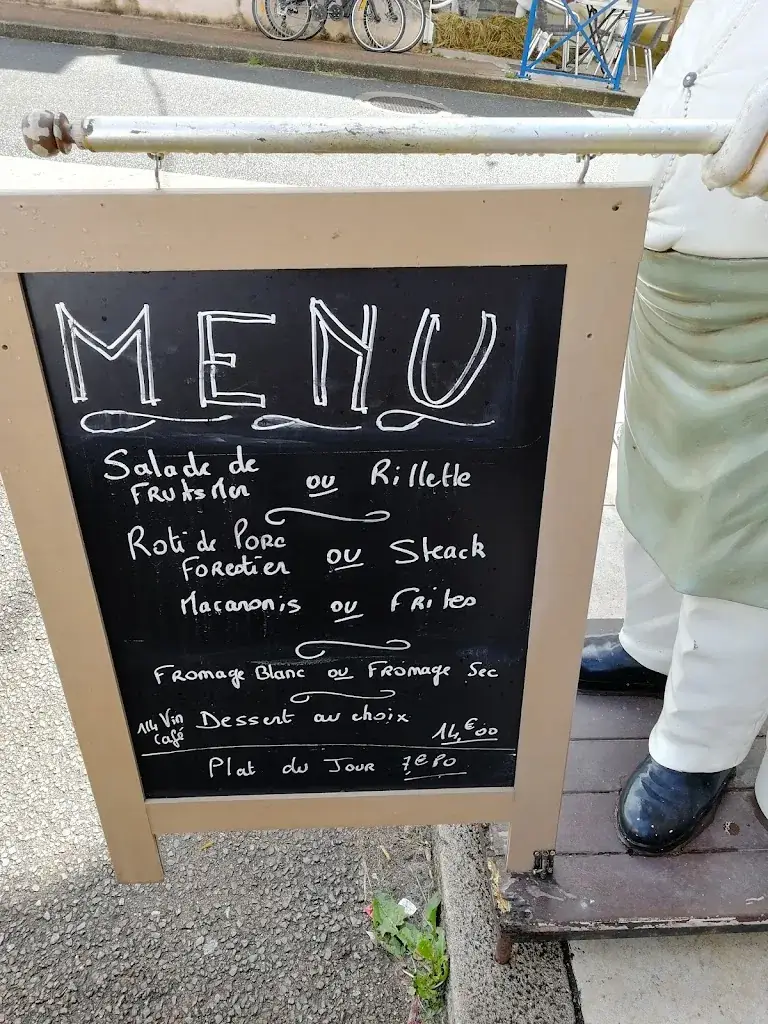 MENU
Salade de ou Rillette
FRuits Mer
Roti de Porc ou Steack
Forestier
Macaronis ou Frites
Fromage Blanc ou Fromage Sec
1/4 Vin Dessert au choix
Café 14,€00
Plat du Jour 7€80